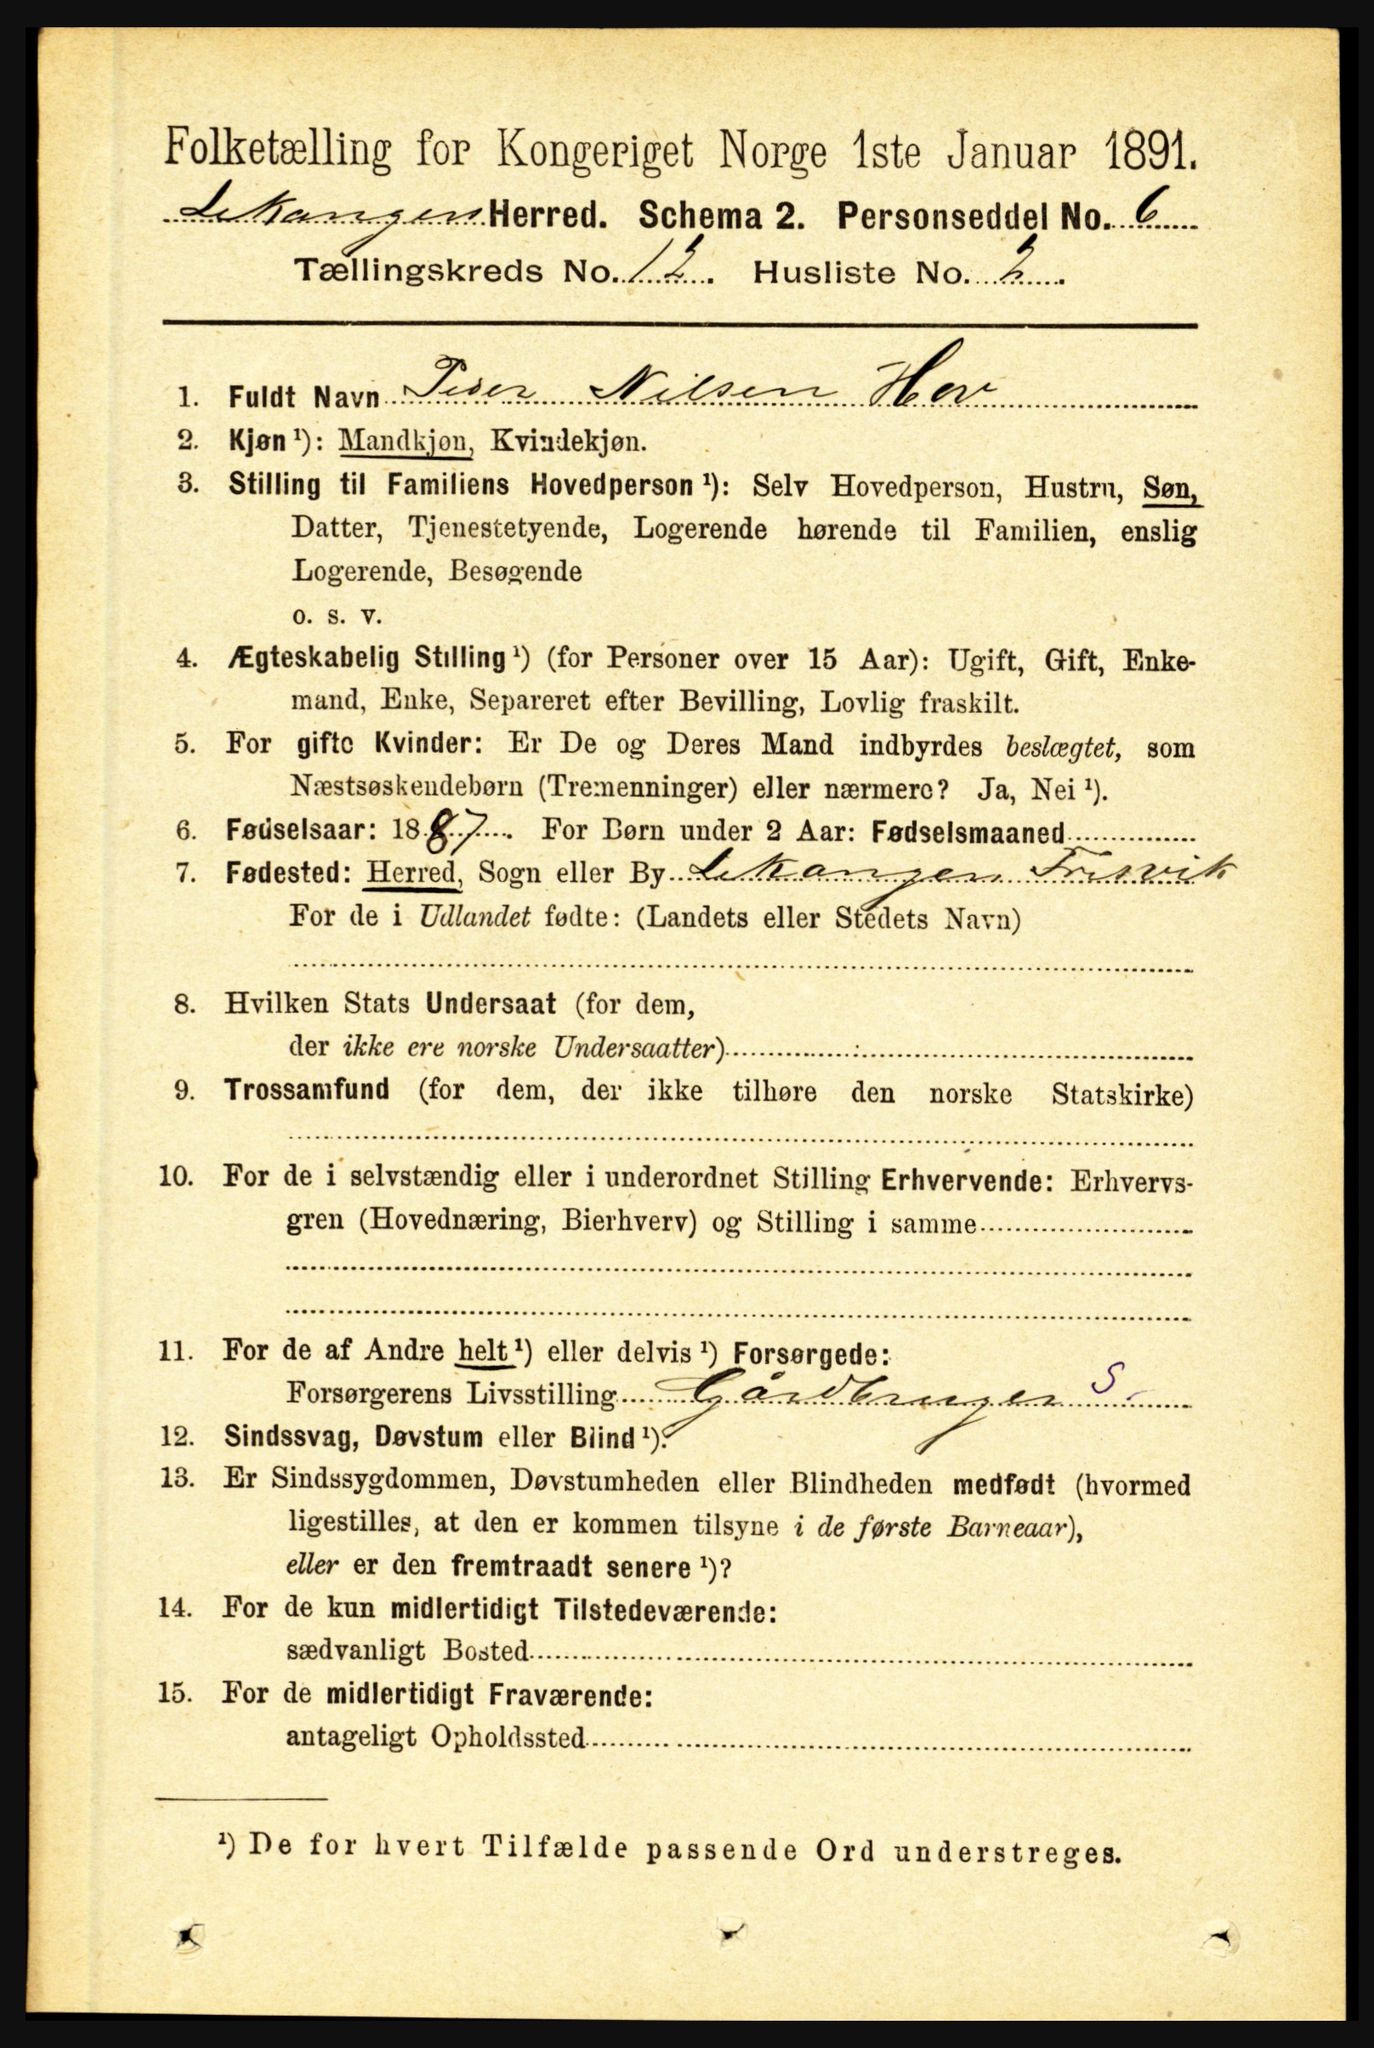 Folketælling for Kongeriget Norge 1ste Januar 1891.
Lekangers Herred. Schema 2. Personseddel No. 6
Tællingskreds No. 12. Husliste No. 2.
1. Fuldt Navn Peder Nilsen Hov
2. Kjøn¹): Mandkjøn, Kvindekjøn.
3. Stilling til Familiens Hovedperson¹): Selv Hovedperson, Hustru, Søn,
Datter, Tjenestetyende, Logerende hørende til Familien, enslig
Logerende, Besøgende
o. s. v.
4. Ægteskabelig Stilling¹) (for Personer over 15 Aar): Ugift, Gift, Enke-
mand, Enke, Separeret efter Bevilling, Lovlig fraskilt.
5. For gifte Kvinder: Er De og Deres Mand indbyrdes beslægtet, som
Næstsøskendebørn (Tremenninger) eller nærmere? Ja, Nei¹).
6. Fødselsaar: 1887. For Børn under 2 Aar: Fødselsmaaned
7. Fødested: Herred, Sogn eller By Lekanger
For de i Udlandet fødte: (Landets eller Stedets Navn)
8. Hvilken Stats Undersaat (for dem,
der ikke ere norske Undersaatter)
9. Trossamfund (for dem, der ikke tilhøre den norske Statskirke)
10. For de i selvstændig eller i underordnet Stilling Erhvervende: Erhvervs-
gren (Hovednæring, Bierhverv) og Stilling i samme
11. For de af Andre helt¹) eller delvis¹) Forsørgede:
Forsørgerens Livsstilling Gårdbruger S.
12. Sindssvag, Døvstum eller Blind¹).
13. Er Sindssygdommen, Døvstumheden eller Blindheden medfødt (hvormed
ligestilles, at den er kommen tilsyne i de første Barneaar),
eller er den fremtraadt senere¹)?
14. For de kun midlertidigt Tilstedeværende:
sædvanligt Bosted
15. For de midlertidigt Fraværende:
antageligt Opholdssted
¹) De for hvert Tilfælde passende Ord understreges.